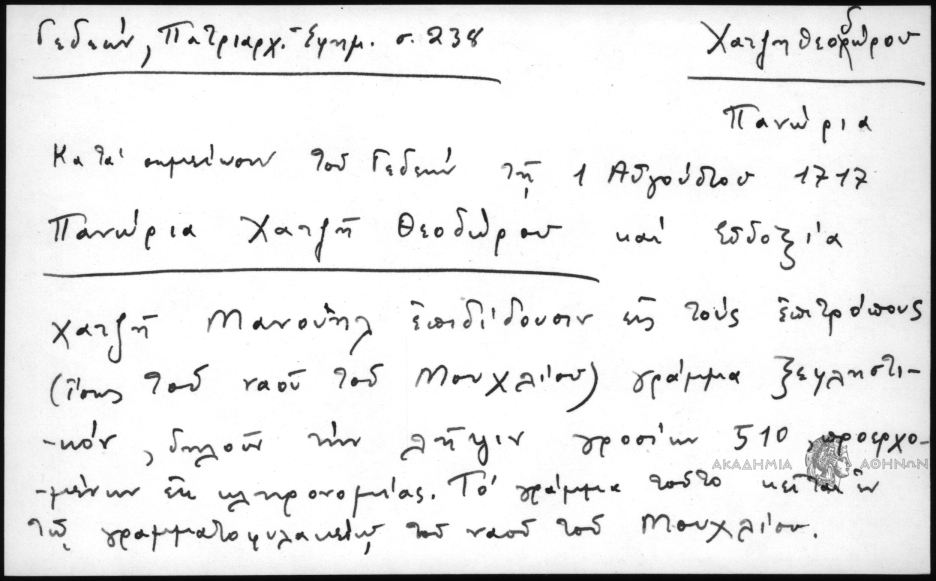 Γεδεών, Πατριαρχ. Ἐφημ. σ. 238
Χατζηθεοδώρου
Πανώρια
Κατά σημείωσιν τοῦ Γεδεών τῇ 1 Αὐγούστου 1717
Πανώρια Χατζῆ Θεοδώρου καί Εὐδοξία
Χατζῆ Μανουήλ ἐπιδίδουσιν εἰς τούς ἐπιτρόπους
(ἴσως τοῦ ναοῦ τοῦ Μουχλίου) γράμμα ξεφλησTι-
-κόν, δηλοῦν τήν λῆψιν γροσίων 510, προερχο-
-μένων ἐκ κληρονομίας. Τό γράμμα τοῦτο κεῖται ἐν
τῷ γραμματοφυλακείῳ τοῦ ναοῦ τοῦ Μουχλίου.
ΑΚΑΔΗΜΙΑ ΑΘΗΝΩΝ